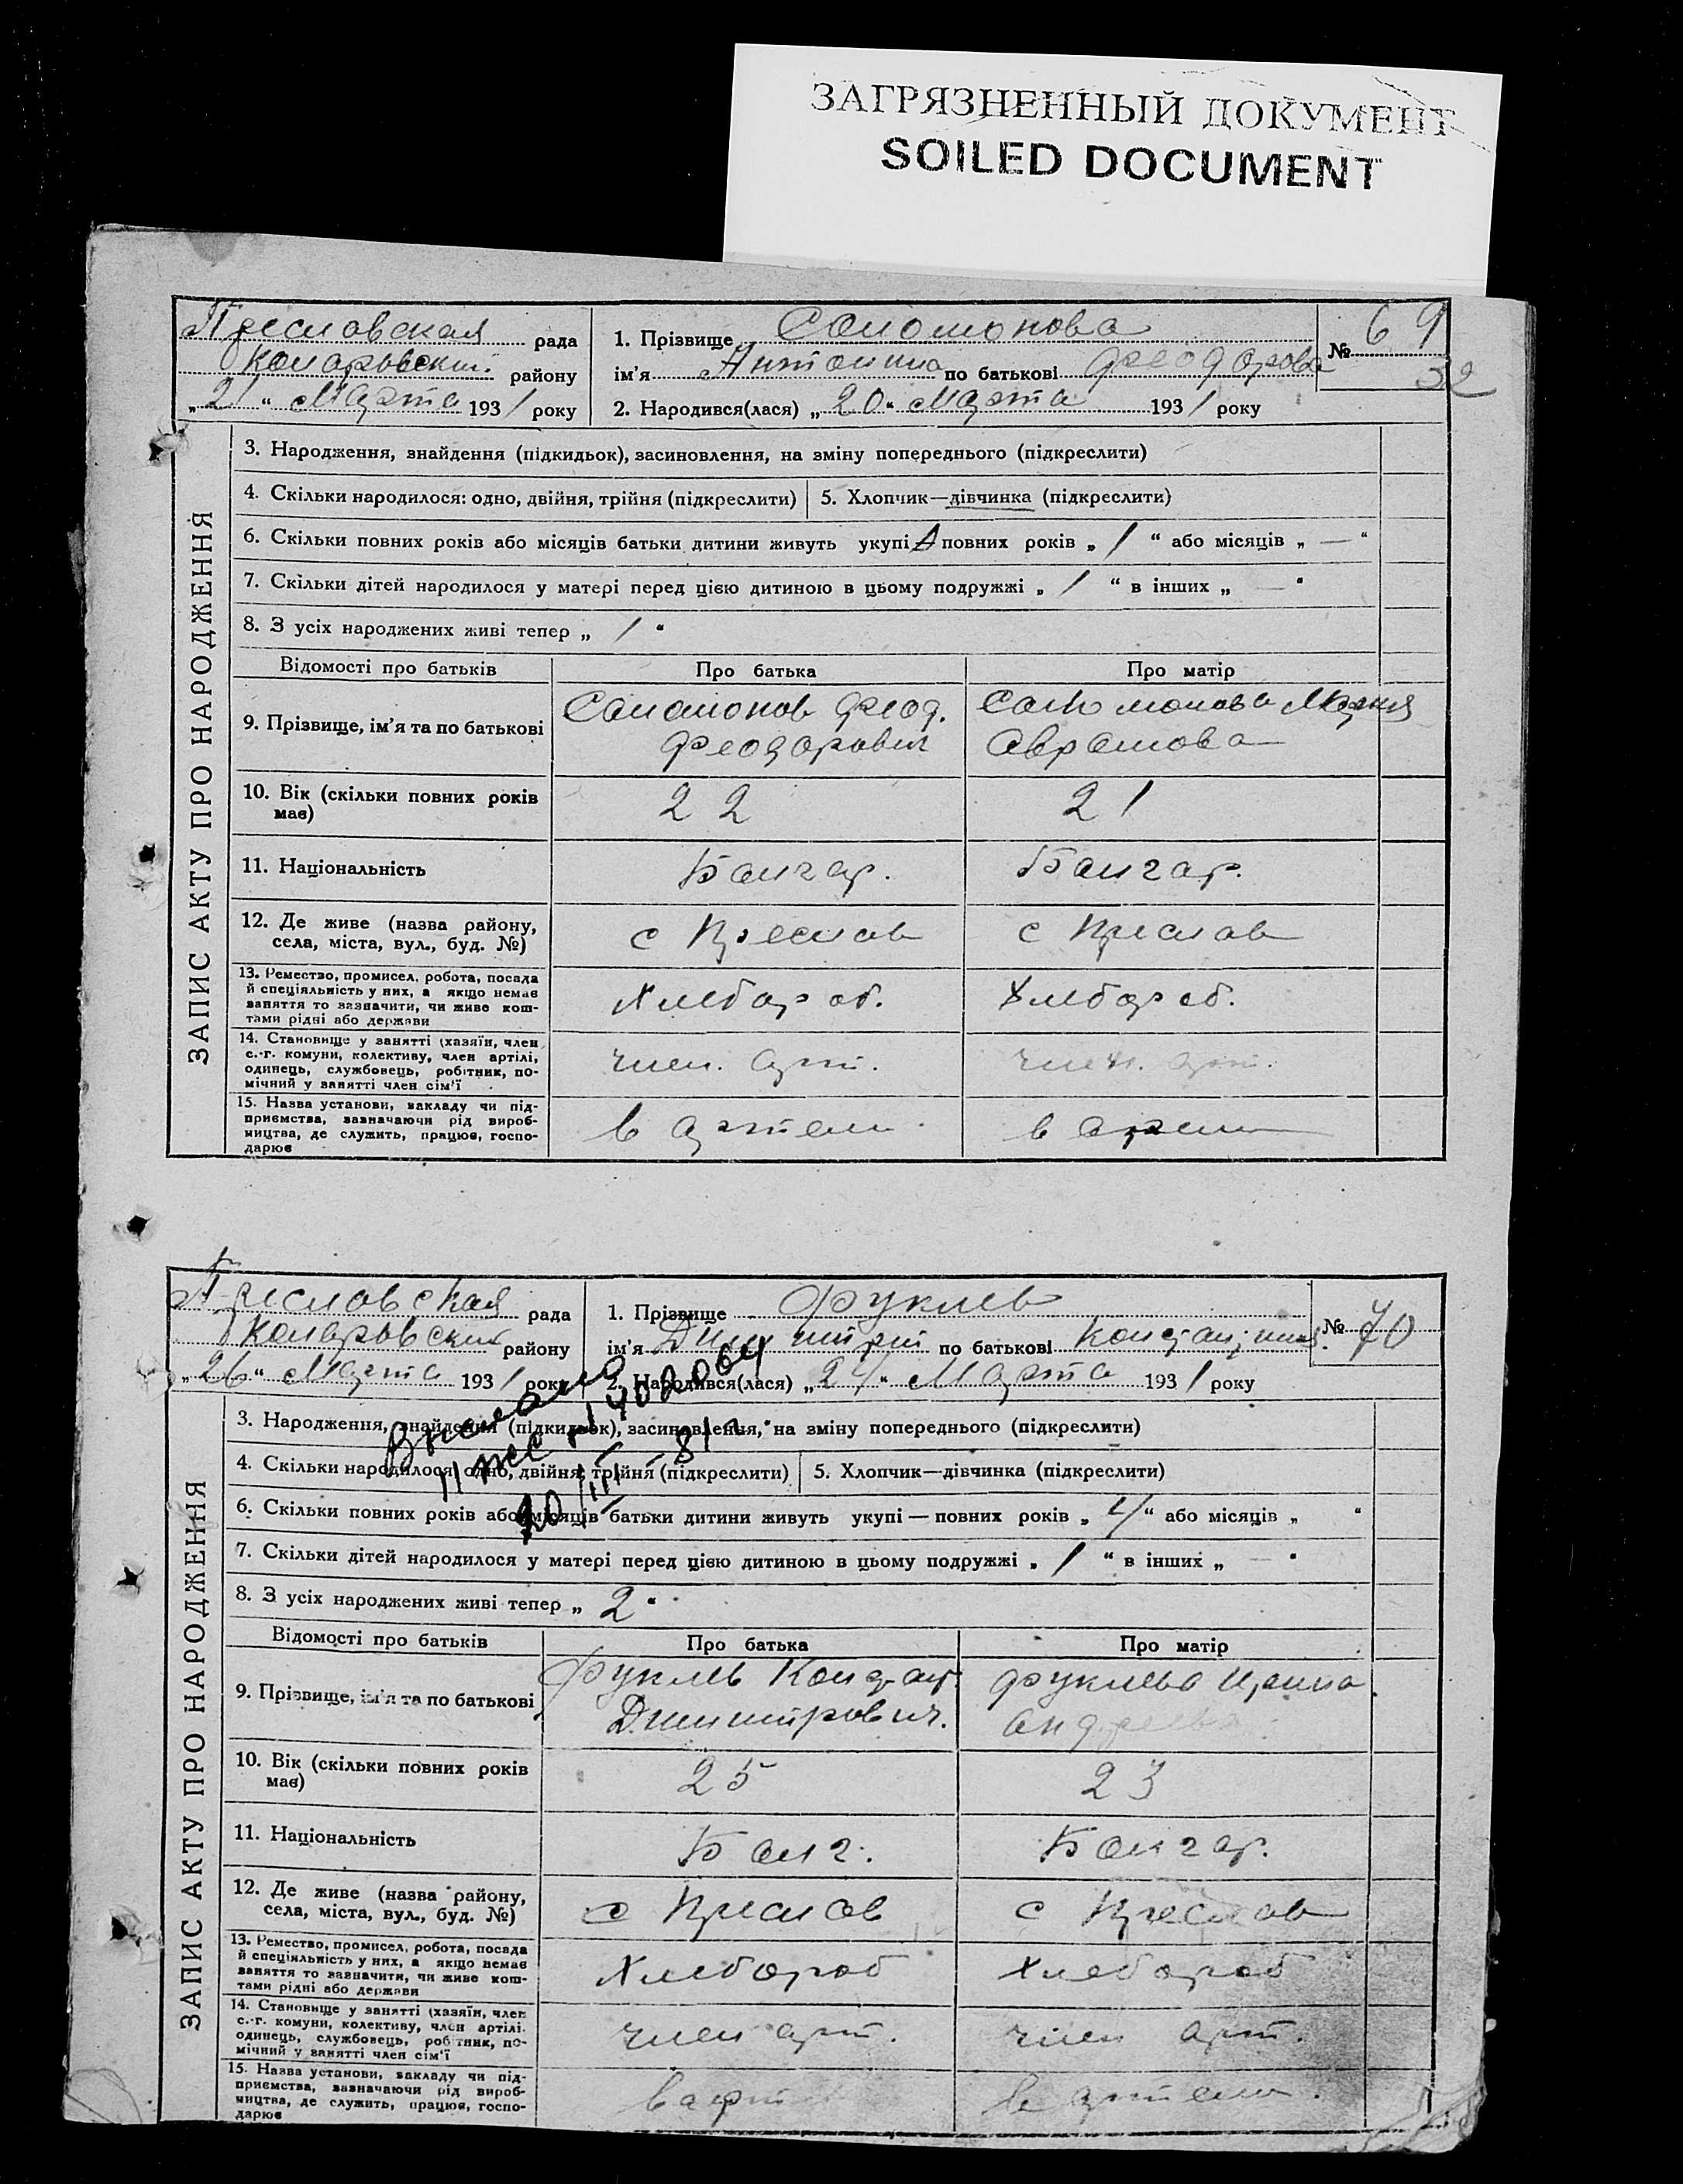 ЗАГРЯЗНЕННЫЙ ДОКУМЕНТ
SOILED DOCUMENT
Преславская рада
Коларовский району
„21“ Марта 1931 року
1. Прізвище Саломонова
ім'я Антонина по батькові Феодорова
2. Народився(лася) „20“ Марта 1931 року
№ 69
32
ЗАПИС АКТУ ПРО НАРОДЖЕННЯ
3. Народження, знайдення (підкидьок), засиновлення, на зміну попереднього (підкреслити)
4. Скільки народилося: одно, двійня, трійня (підкреслити) 5. Хлопчик—дівчинка (підкреслити)
6. Скільки повних років або місяців батьки дитини живуть укупі повних років „ 1 “ або місяців „ — “
7. Скільки дітей народилося у матері перед цією дитиною в цьому подружжі „ 1 “ в інших „ — “
8. З усіх народжених живі тепер „ 1 “
Відомості про батьків Про батька Про матір
9. Прізвище, ім'я та по батькові
Саломонов Феод.
Феодорович
Саломонова Мария
Аврамова
10. Вік (скільки повних років
має)
22 21
11. Національність Болгар. Болгар.
12. Де живе (назва району,
села, міста, вул., буд. №)
с Преслав с Преслав
13. Ремество, промисел, робота, посада
й спеціяльність у них, а якщо немає
заняття то зазначити, чи живе кош-
тами рідні або держави
Хлебороб. Хлебороб.
14. Становище у занятті (хазяїн, член
с.-г. комуни, колективу, член артілі,
одинець, службовець, робітник, по-
мічний у занятті член сім'ї
член. арт. член. арт.
15. Назва установи, закладу чи під-
приємства, зазначаючи рід вироб-
ництва, де служить, працює, госпо-
дарює
в артели в артели
Преславская рада
Коларовский району
„26“ Марта 1931 року
1. Прізвище Фуклев
ім'я Димитрий по батькові Констант.
2. Народився(лася) „24“ Марта 1931 року
№ 70
ЗАПИС АКТУ ПРО НАРОДЖЕННЯ
3. Народження, знайдення (підкидьок), засиновлення, на зміну попереднього (підкреслити)
4. Скільки народилося: одно, двійня, трійня (підкреслити) 5. Хлопчик—дівчинка (підкреслити)
6. Скільки повних років або місяців батьки дитини живуть укупі — повних років „ 4 “ або місяців „ “
7. Скільки дітей народилося у матері перед цією дитиною в цьому подружжі „ 1 “ в інших „ — “
8. З усіх народжених живі тепер „ 2 “
Відомості про батьків Про батька Про матір
9. Прізвище, ім'я та по батькові
Фуклев Констант.
Димитрович.
Фуклева Ирина
Андреева
10. Вік (скільки повних років
має)
25 23
11. Національність Болг. Болгар.
12. Де живе (назва району,
села, міста, вул., буд. №)
с Преслав с Преслав
13. Ремество, промисел, робота, посада
й спеціяльність у них, а якщо немає
заняття то зазначити, чи живе кош-
тами рідні або держави
Хлебороб Хлебороб
14. Становище у занятті (хазяїн, член
с.-г. комуни, колективу, член артілі,
одинець, службовець, робітник, по-
мічний у занятті член сім'ї
член арт. член арт.
15. Назва установи, закладу чи під-
приємства, зазначаючи рід вироб-
ництва, де служить, працює, госпо-
дарює
в арт в артели.